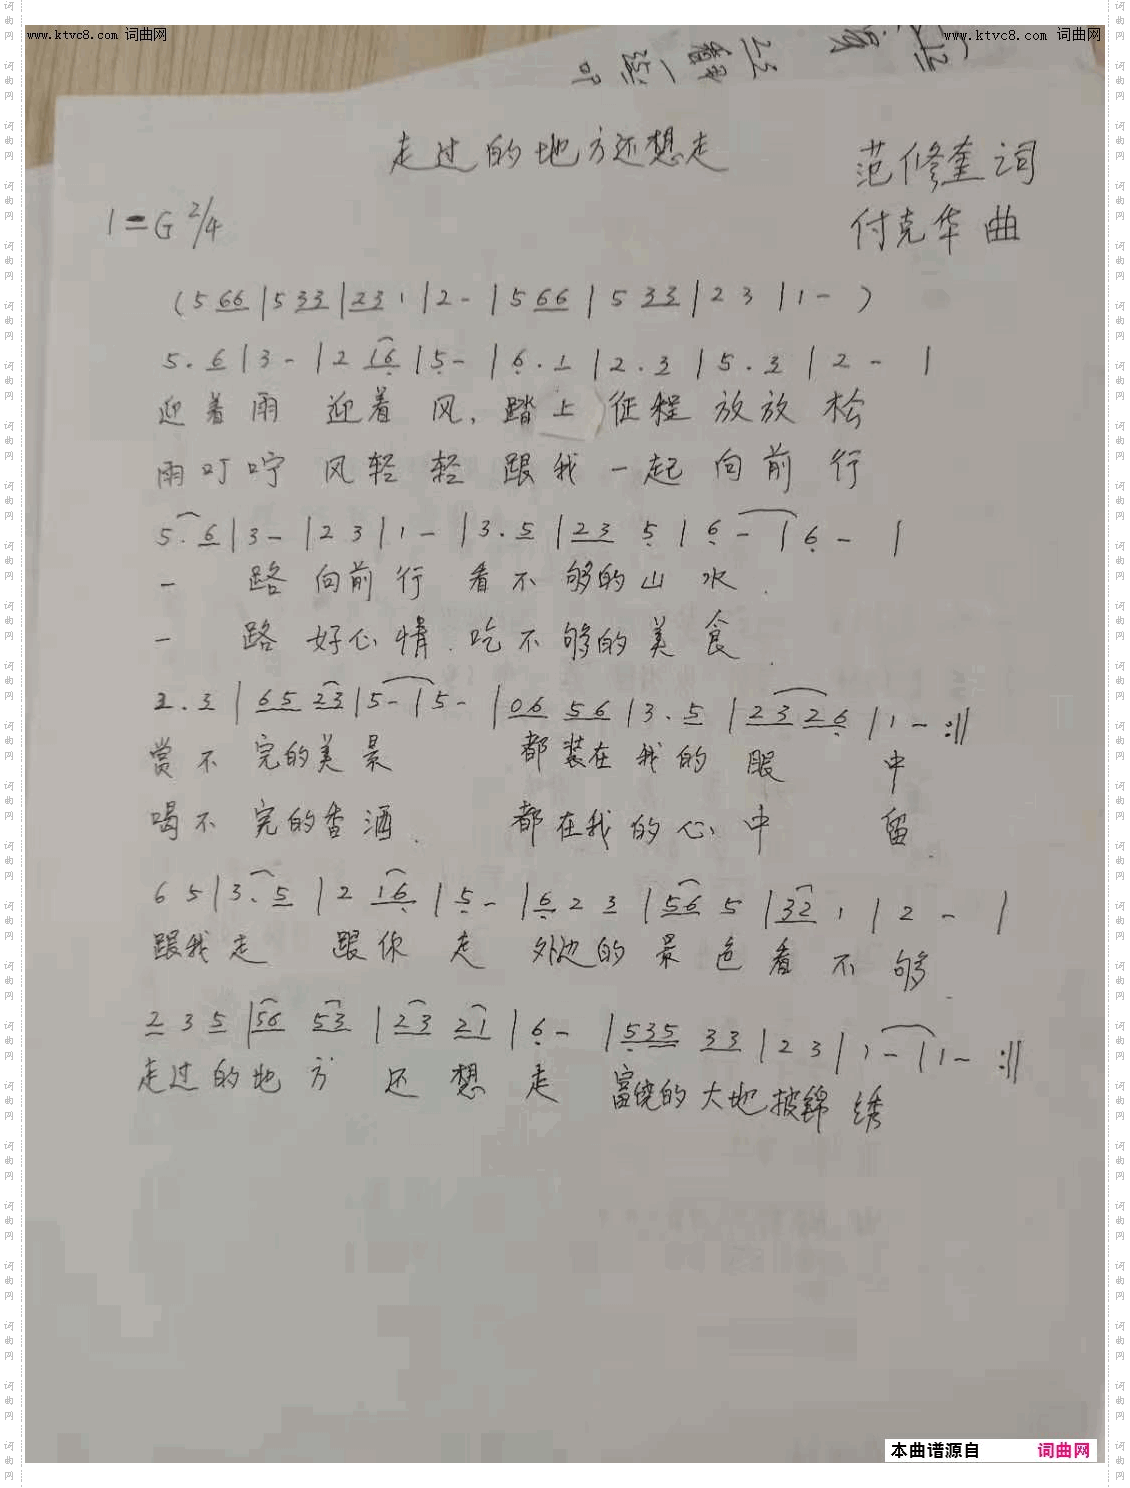 www.ktvc8.com 词曲网
www.ktvc8.com 词曲网
走过的地方还想走
范修奎 词
付克华 曲
1=G 2/4
(5 66 | 5 33 | 23 1 | 2 - | 5 66 | 5 33 | 2 3 | 1 - )
5. 6 | 3 - | 2 16 | 5 - | 6. 1 | 2. 3 | 5. 3 | 2 - |
迎着雨 迎着风, 踏上征程放放松
雨叮咛 风轻轻 跟我一起向前行
5. 6 | 3 - | 2 3 | 1 - | 3. 5 | 23 5 | 6 - | 6 - |
一 路向前行 看不够的山水.
一 路好心情. 吃不够的美食.
2. 3 | 65 23 | 5 - | 5 - | 06 56 | 3. 5 | 23 26 | 1 - :||
赏不完的美景 都装在我的眼 中
喝不完的香酒. 都在我的心中 留.
6 5 | 3. 5 | 2 16 | 5 - | 6 2 3 | 56 5 | 32 1 | 2 - |
跟我走 跟你走 外边的景色看不够.
2 3 5 | 56 53 | 23 21 | 6 - | 535 33 | 2 3 | 1 - | 1 - :||
走过的地方 还想走 富饶的大地披锦绣
本曲谱源自 词曲网